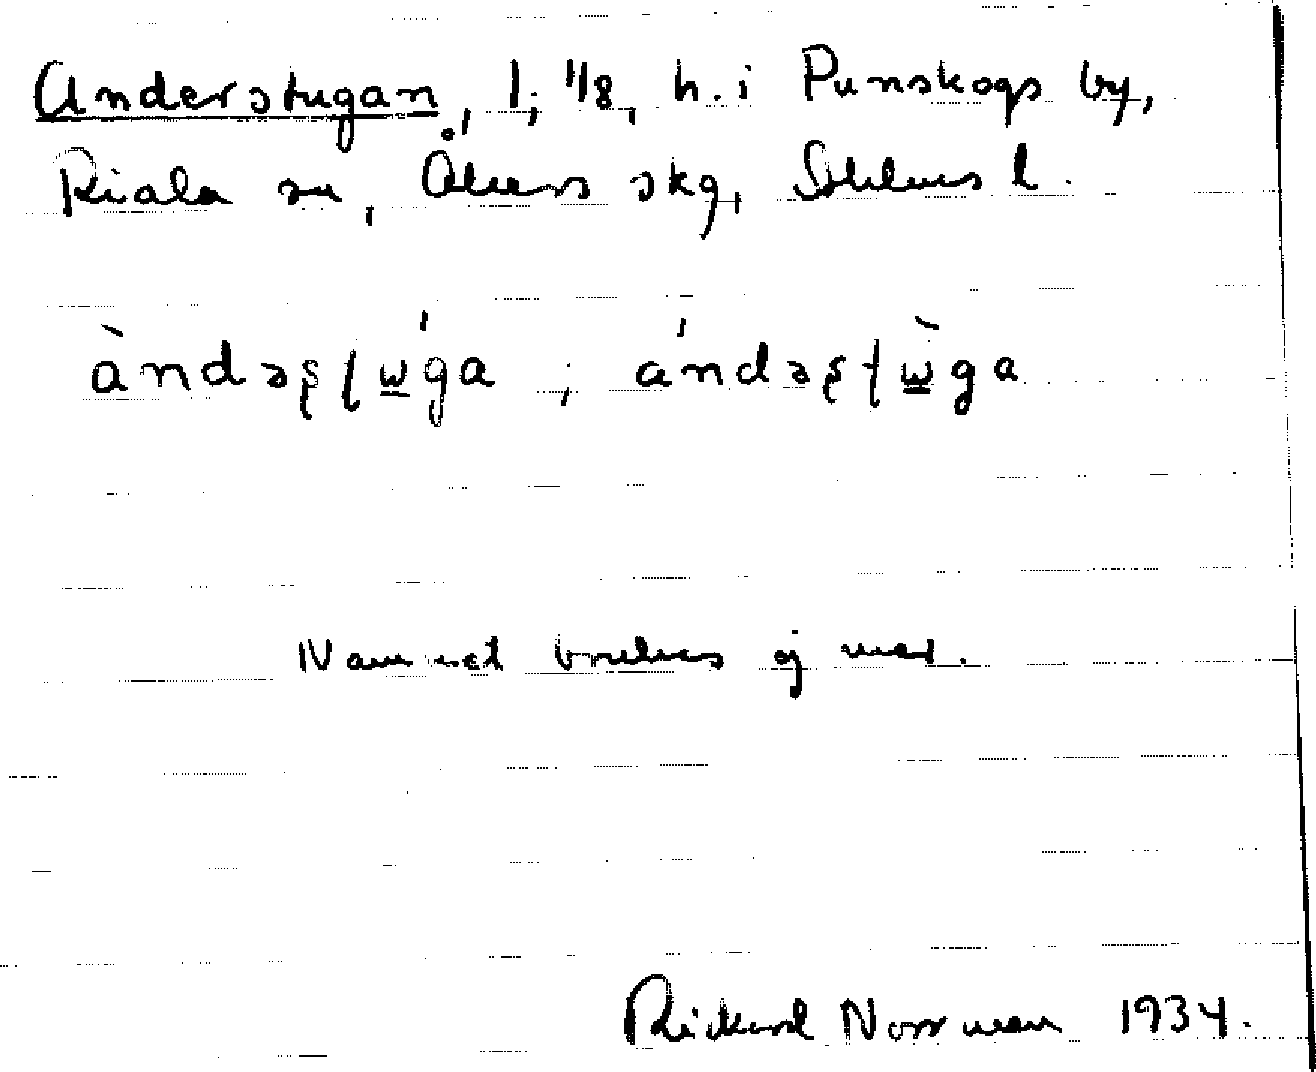 Anderstugan, 1; 1/8, h. i Punskogs by,
Riala sn, Åkers skg, Sthlms l.
àndəʂʈɯ́ga ; ándəʂʈɯ̀ga
Namnet brukas ej mer.
Rickard Norrman 1934.